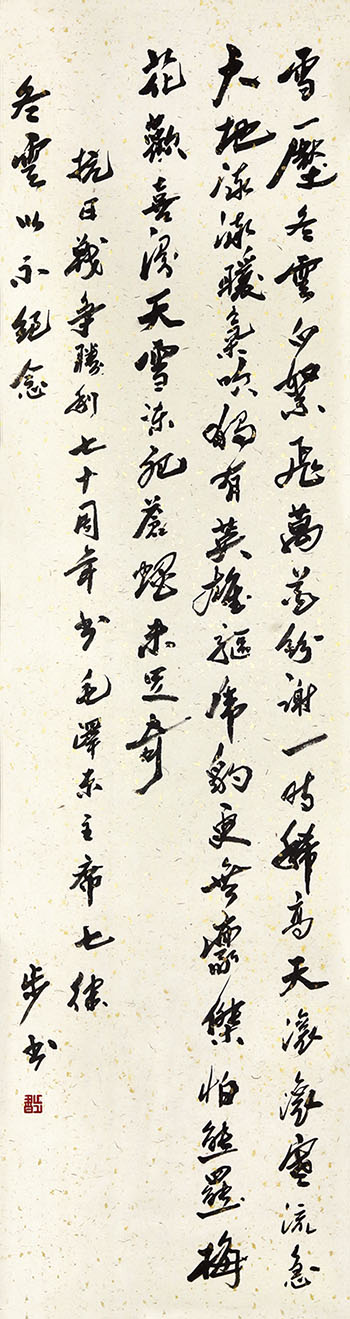 雪壓冬雲白絮飛萬花紛謝一時稀高天滾滾寒流急
大地微微暖氣吹獨有英雄驅虎豹更無豪傑怕熊羆梅
花歡喜漫天雪凍死蒼蠅未足奇
抗日戰爭勝利七十周年書毛澤東主席七律
冬雲以示紀念 步書